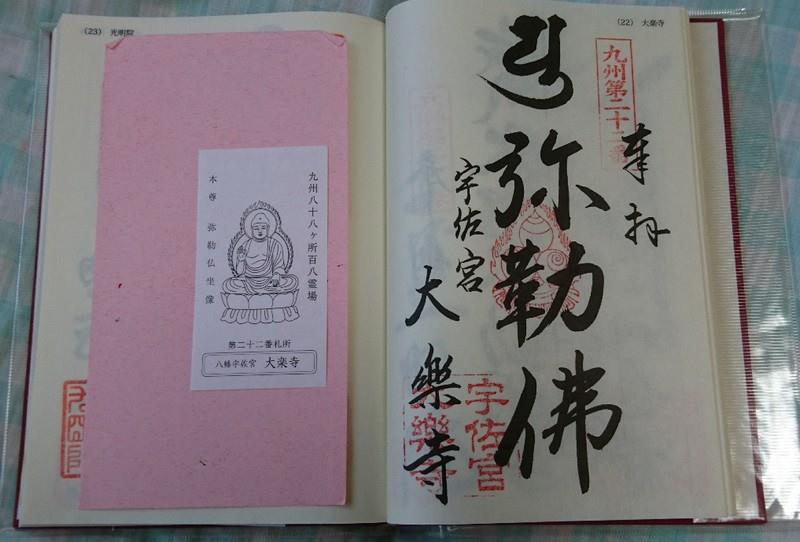 (22) 大楽寺
九州第二十二番
奉拝
弥勒佛
宇佐宮
大樂寺
宇佐宮
大樂寺
(23) 光明院
九州八十八ヶ所百八霊場
本尊 弥勒仏坐像
第二十二番札所
八幡宇佐宮 大楽寺